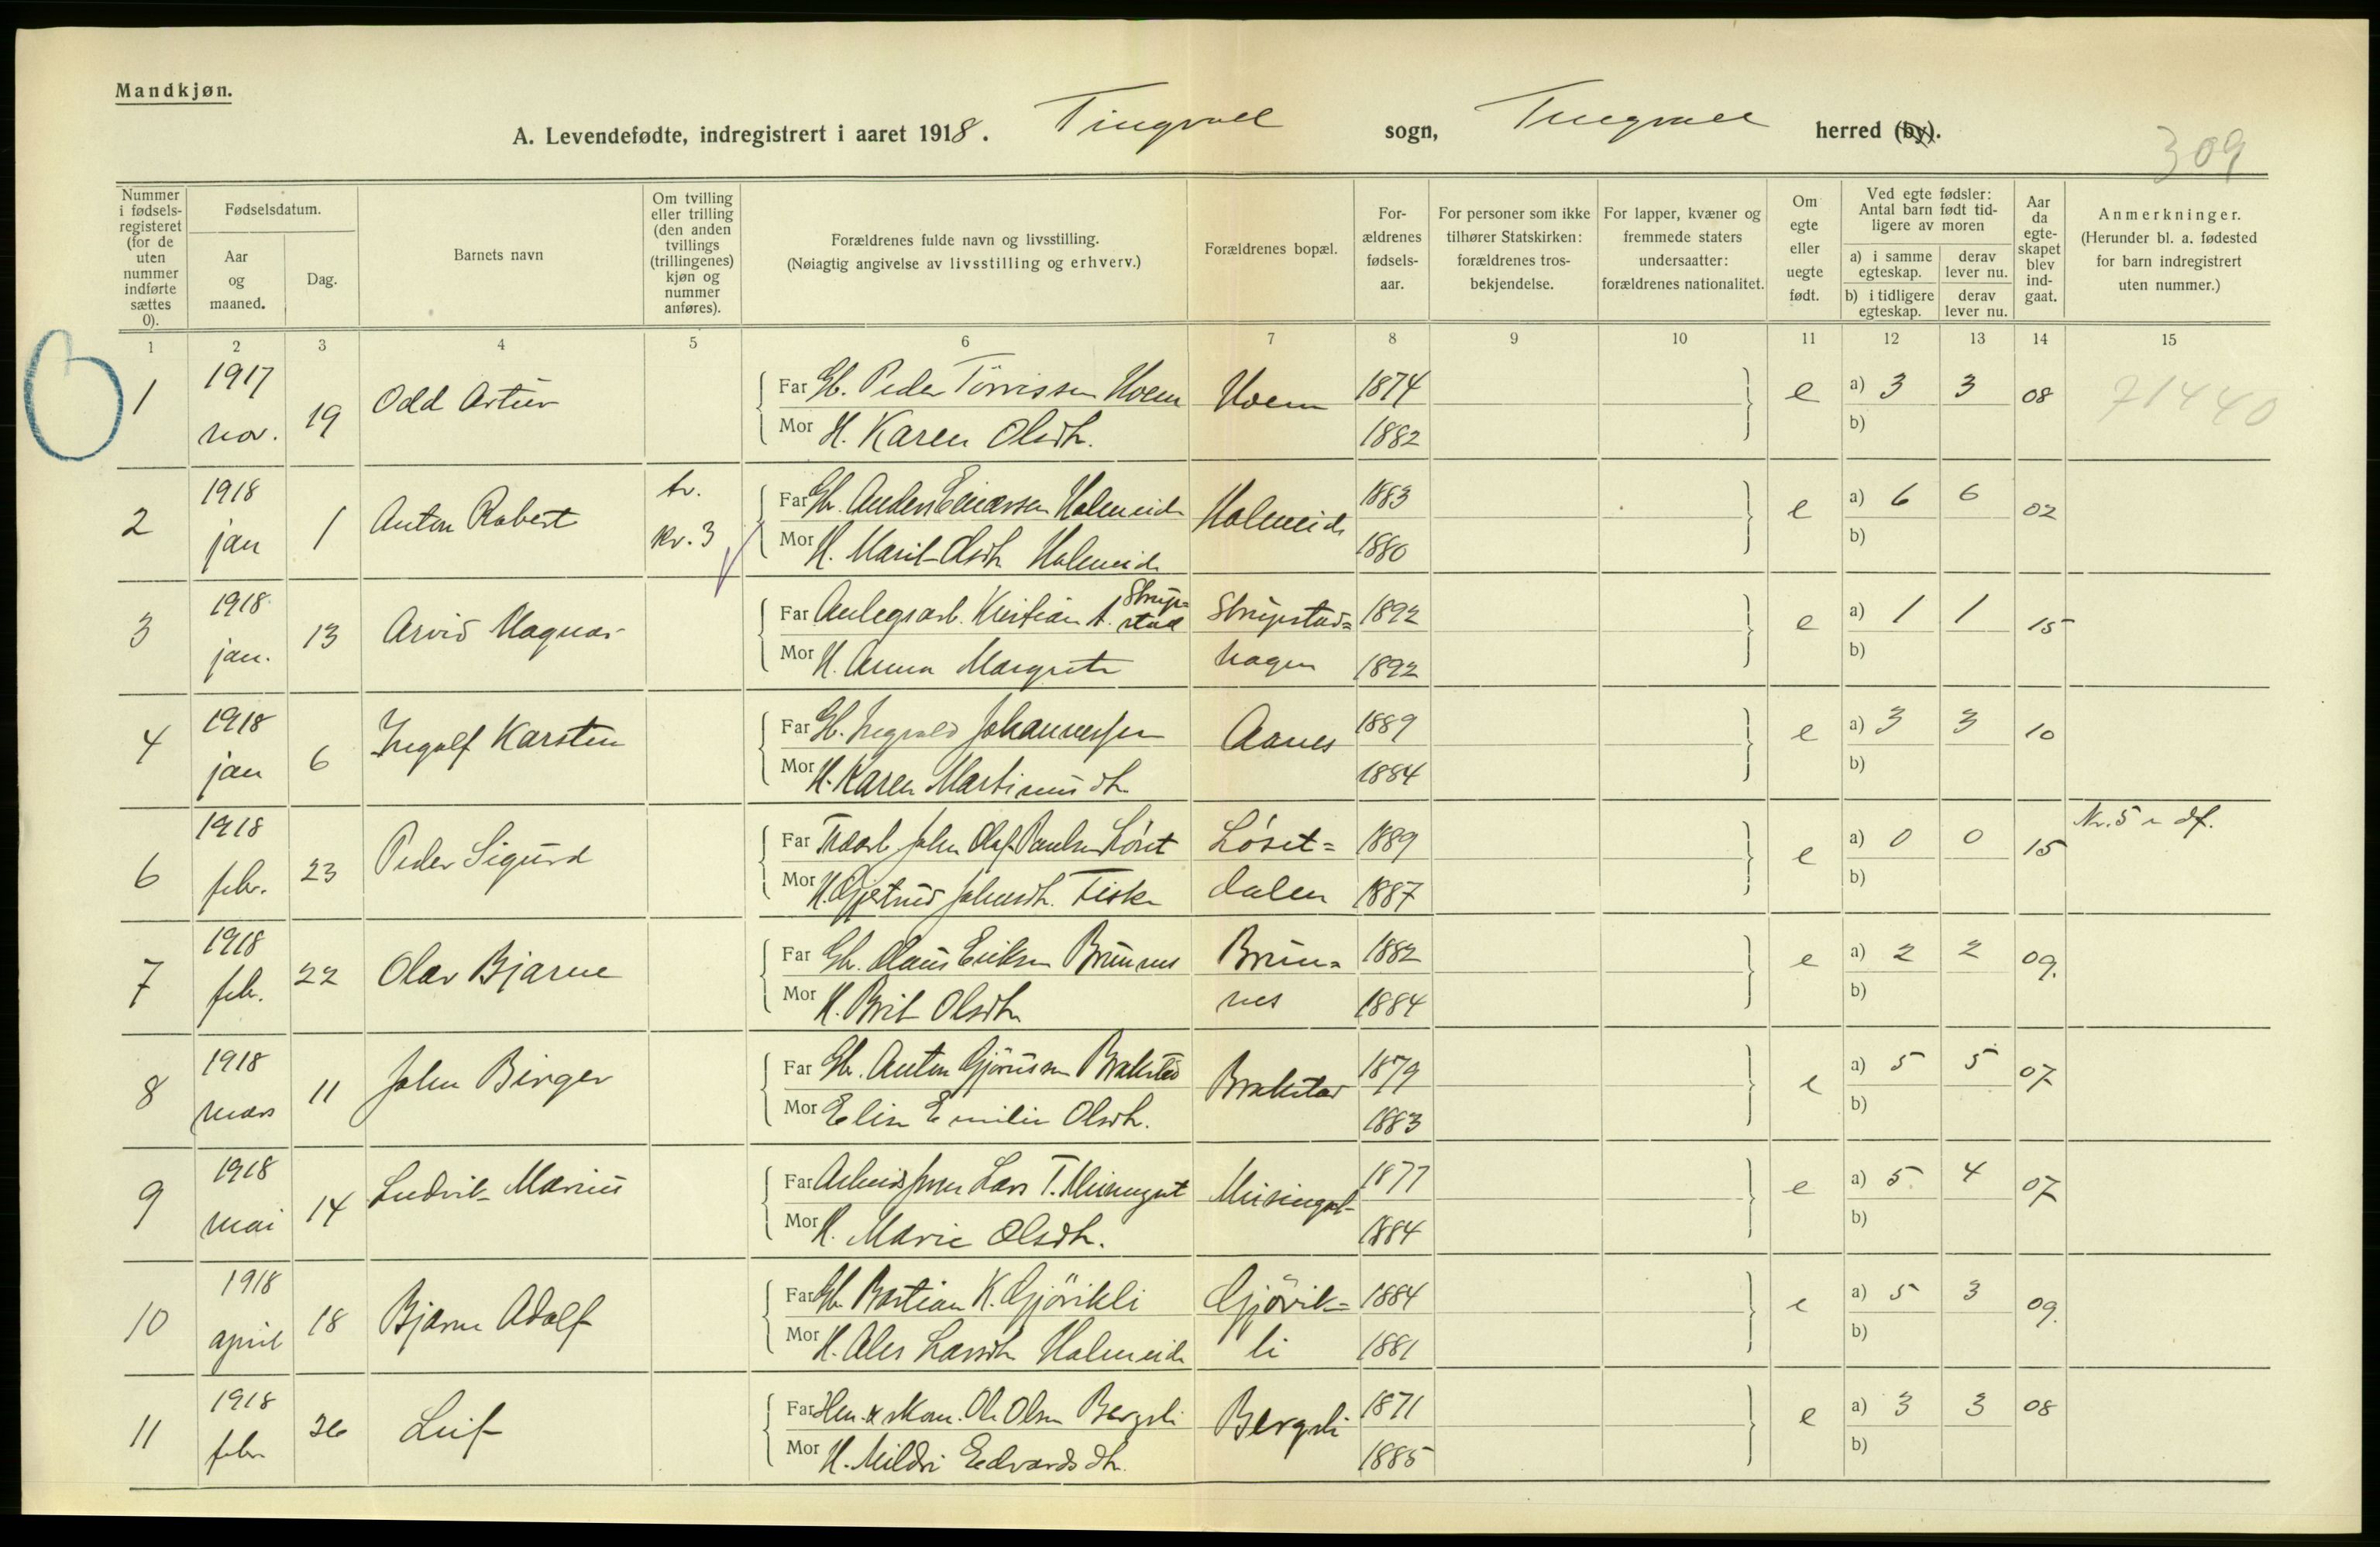 Mandkjøn.
A. Levendefødte, indregistrert i aaret 1918. Tingvoll sogn, Tingvoll herred (by).
309
Nummer i fødsels-registeret (for de uten nummer indførte sættes 0).
Fødselsdatum.
Aar og maaned.
Dag.
Barnets navn
Om tvilling eller trilling (den anden tvillings (trillingenes) kjøn og nummer anføres).
Forældrenes fulde navn og livsstilling.
(Nøiagtig angivelse av livsstilling og erhverv.)
Forældrenes bopæl.
For-ældrenes fødsels-aar.
For personer som ikke tilhører Statskirken: forældrenes tros-bekjendelse.
For lapper, kvæner og fremmede staters undersaatter: forældrenes nationalitet.
Om egte eller uegte født.
Ved egte fødsler: Antal barn født tid-ligere av moren
a) i samme egteskap.
derav lever nu.
b) i tidligere egteskap.
derav lever nu.
Aar da egte-skapet blev ind-gaat.
Anmerkninger.
(Herunder bl. a. fødested for barn indregistrert uten nummer.)
1 2 3 4 5 6 7 8 9 10 11 12 13 14 15
1 1917 nov. 19 Odd Artur
Far Gb. Peder Tørrissen Hoem Hoem 1874 e a) 3 3 08 71440
Mor H. Karen Olsdtr. 1882 b)
2 1918 jan 1 Anton Robert tv. kv. 3
Far Gb. Anders Einarsen Holmeide Holmeide 1883 e a) 6 6 02
Mor H. Marit Olsdtr Holmeide 1880 b)
3 1918 jan. 13 Arvid Magnar
Far Anlegsarb. Kristian A. Strupstad Strupstad= 1892 e a) 1 1 15
Mor H. Anna Margrete hagen 1892 b)
4 1918 jan 6 Ingolf Karsten
Far Gb. Ingvald Johannessen Aanes 1889 e a) 3 3 10
Mor H. Karen Martinusdtr 1884 b)
6 1918 febr. 23 Peder Sigurd
Far John Olaf Paulsen Løset Løset= 1889 e a) 0 0 15 Nr. 5 = df.
Mor H. Gjertrud Johnsdtr. Fiske dalen 1887 b)
7 1918 feb. 22 Olav Bjarne
Far Gb. Olaus Eriksen Brunnes Brun= 1882 e a) 2 2 09.
Mor H. Brit Olsdtr nes 1884 b)
8 1918 mars 11 John Birger
Far Gb. Anton Gjørusen Brakstad Brakstad 1879 e a) 5 5 07
Mor Elise Emilie Olsdtr. 1883 b)
9 1918 mai 14 Ludvik Marius
Far Lars T. Meisingset Meisingset 1877 e a) 5 4 07
Mor H. Marie Olsdtr. 1884 b)
10 1918 april 18 Bjarne Adolf
Far Gb Bastian K. Gjøvikli Gjøvik= 1884 e a) 5 3 09.
Mor H. Ales Larsdtr Holmeide li 1881 b)
11 1918 febr 26 Leif
Far Ole Olsen Bergsli Bergsli 1871 e a) 3 3 08
Mor H. Mildri Edvardsdtr. 1885 b)